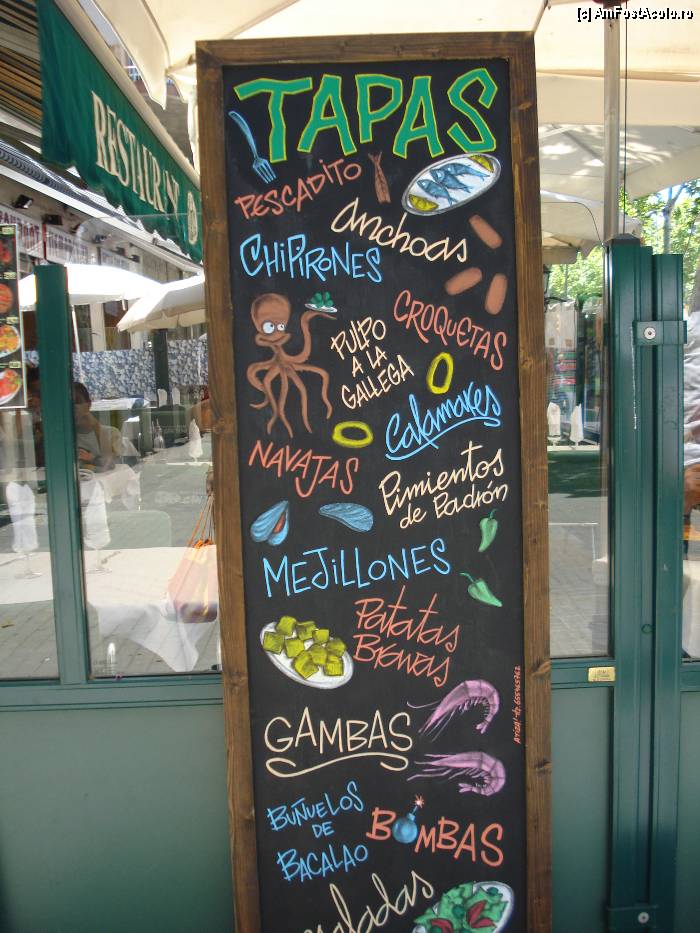 [c] AmFostAcolo.ro
RESTAURAN
TAPAS
PESCADITO
Anchoas
CHIPIRONES
CROQUETAS
PULPO
A LA
GALLEGA
Calamares
NAVAJAS
Pimientos
de Padrón
MEJILLONES
Patatas
Bravas
GAMBAS
BUÑUELOS
DE
BACALAO
BOMBAS